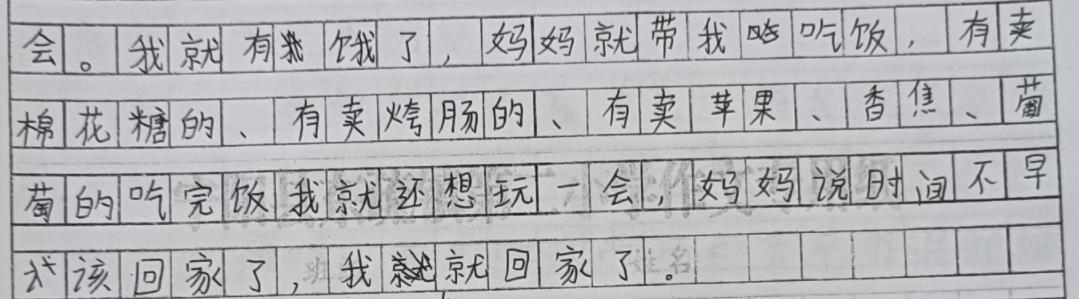 会。我就有饿了，妈妈就带我吃饭，有卖
棉花糖的、有卖烤肠的、有卖苹果、香焦、葡
萄的吃完饭我就还想玩一会，妈妈说时间不早
该回家了，我就回家了。